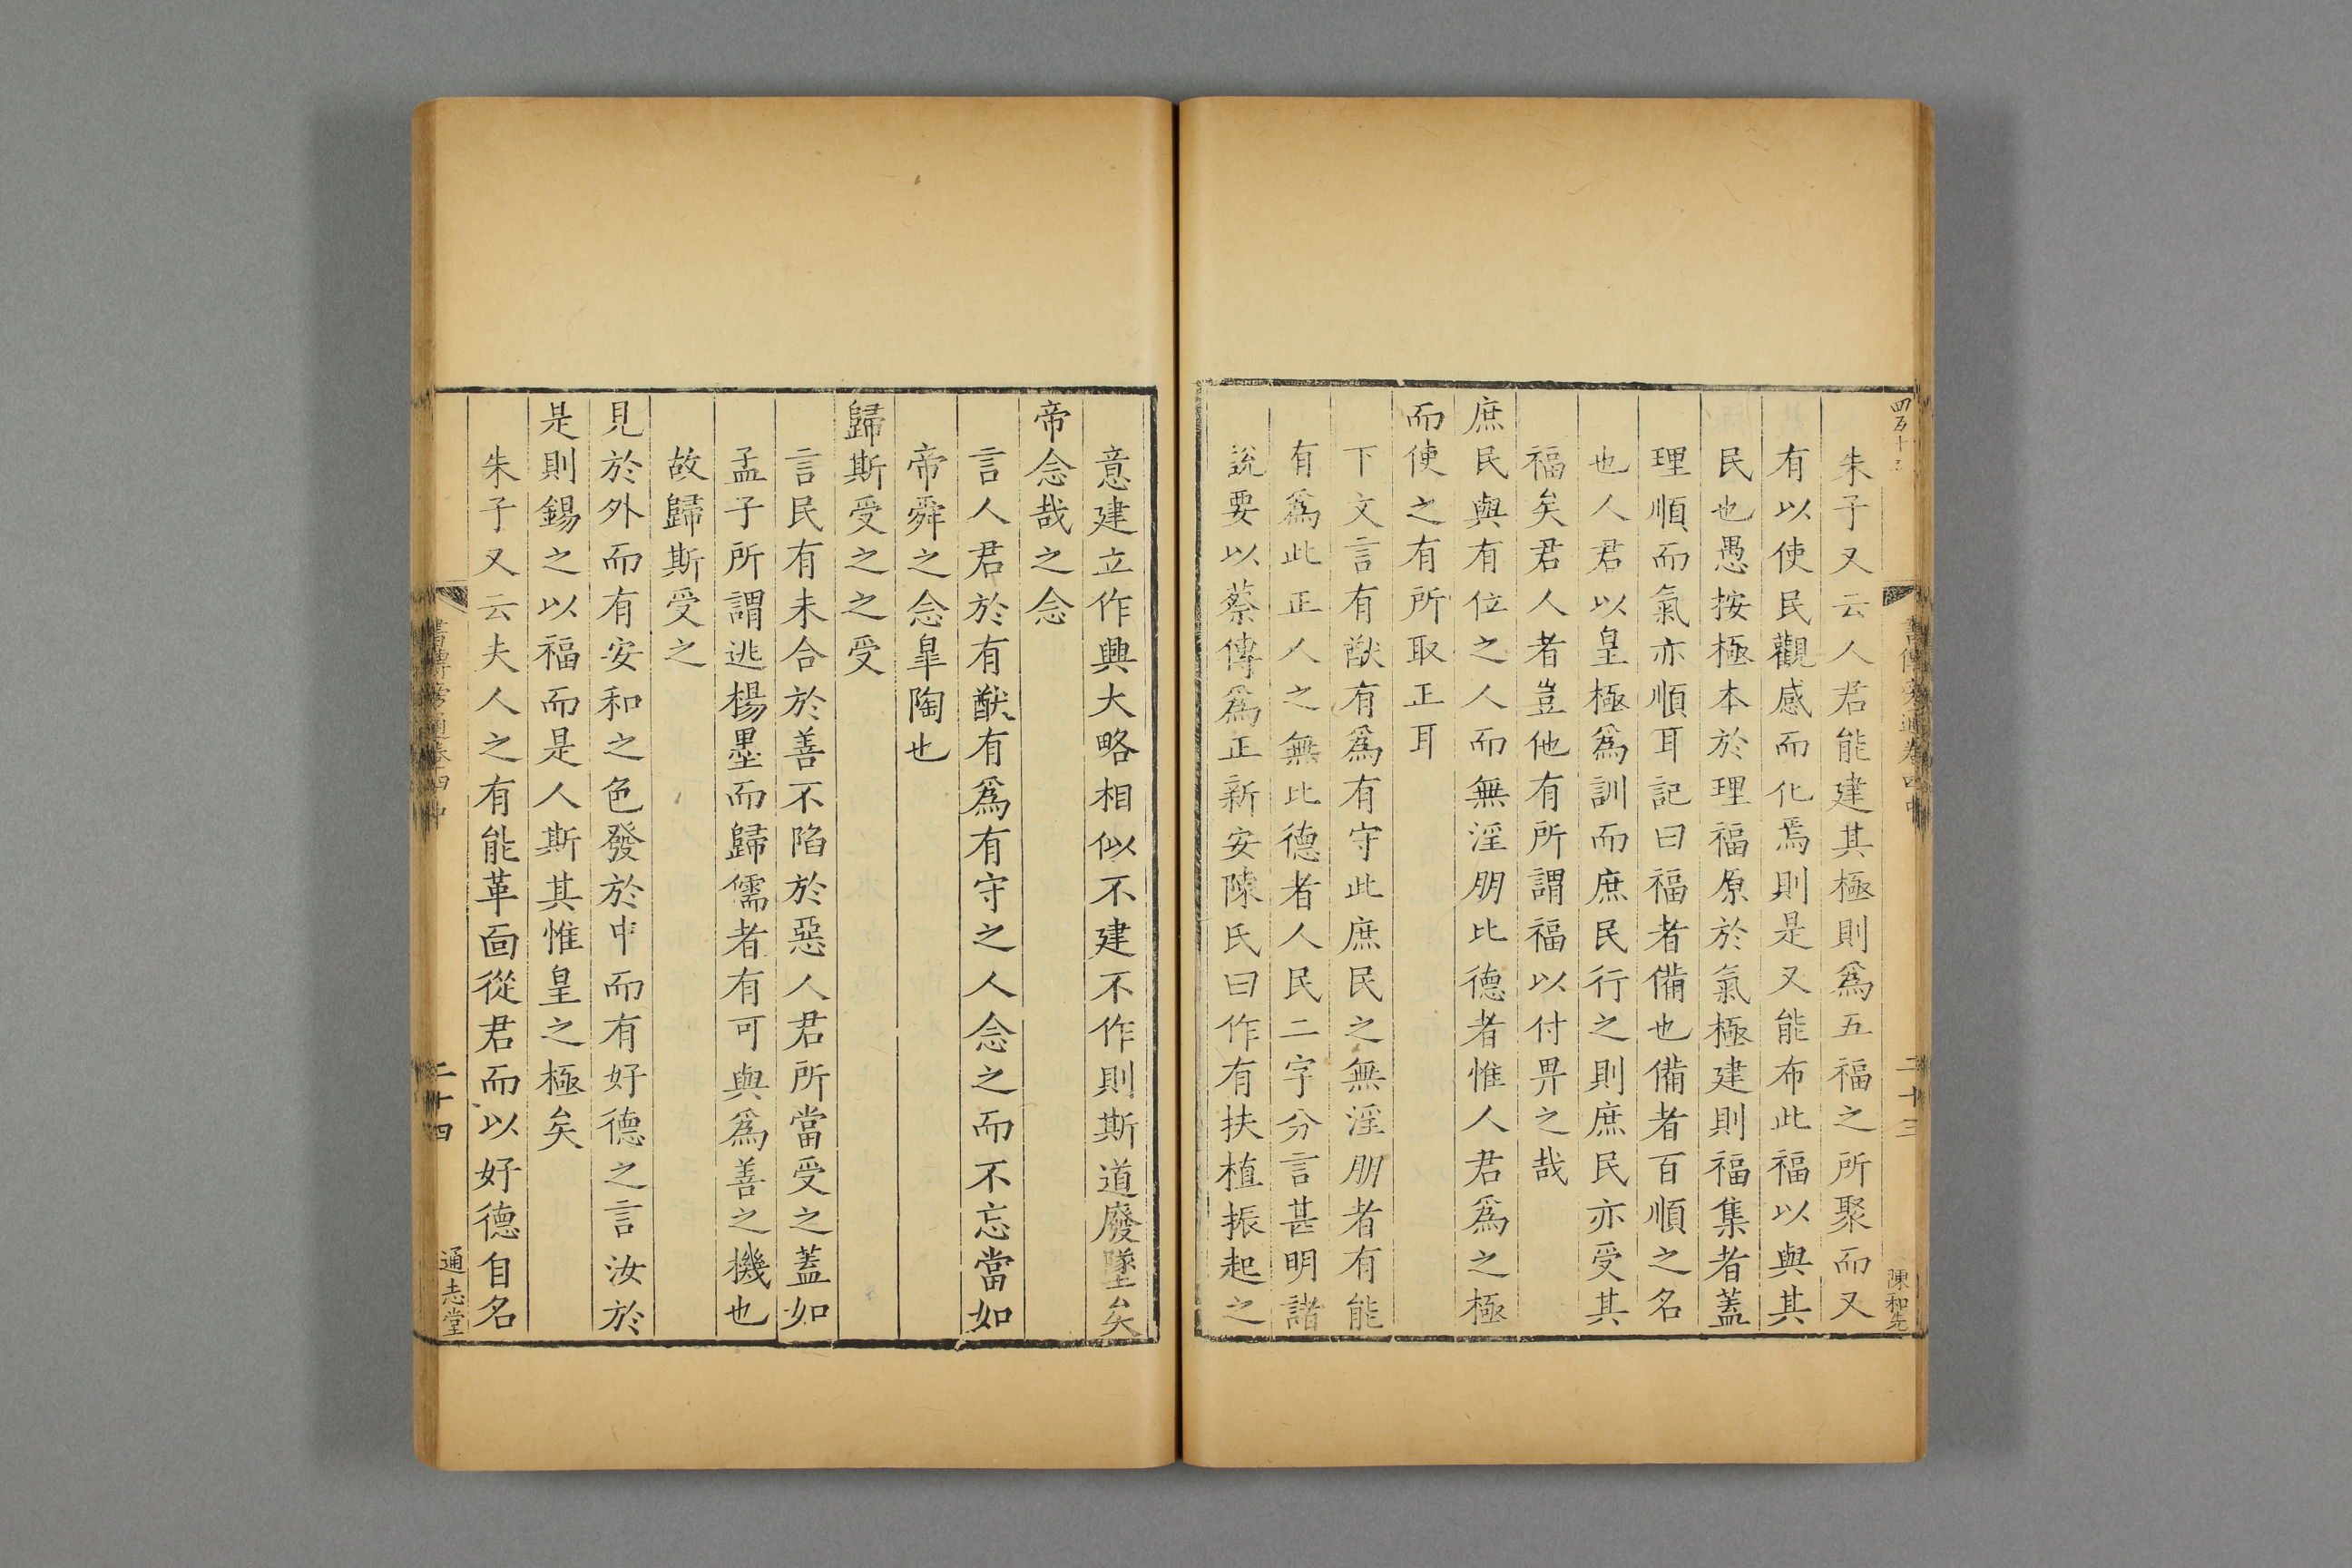 書傳旁通卷四中
二十三
陳和先
朱子又云人君能建其極則爲五福之所聚而又
有以使民觀感而化焉則是又能布此福以與其
民也愚按極本於理福原於氣極建則福集者蓋
理順而氣亦順耳記曰福者備也備者百順之名
也人君以皇極爲訓而庶民行之則庶民亦受其
福矣君人者豈他有所謂福以付畀之哉
庶民與有位之人而無淫朋比德者惟人君爲之極
而使之有所取正耳
下文言有猷有爲有守此庶民之無淫朋者有能
有爲此正人之無比德者人民二字分言甚明諸
說要以蔡傳爲正新安陳氏曰作有扶植振起之
意建立作興大略相似不建不作則斯道廢墜矣
帝念哉之念
言人君於有猷有爲有守之人念之而不忘當如
帝舜之念臯陶也
歸斯受之之受
言民有未合於善不陷於惡人君所當受之蓋如
孟子所謂逃楊墨而歸儒者有可與爲善之機也
故歸斯受之
見於外而有安和之色發於中而有好德之言汝於
是則錫之以福而是人斯其惟皇之極矣
朱子又云夫人之有能革面從君而以好德自名
書傳旁通卷四中
二十四
通志堂